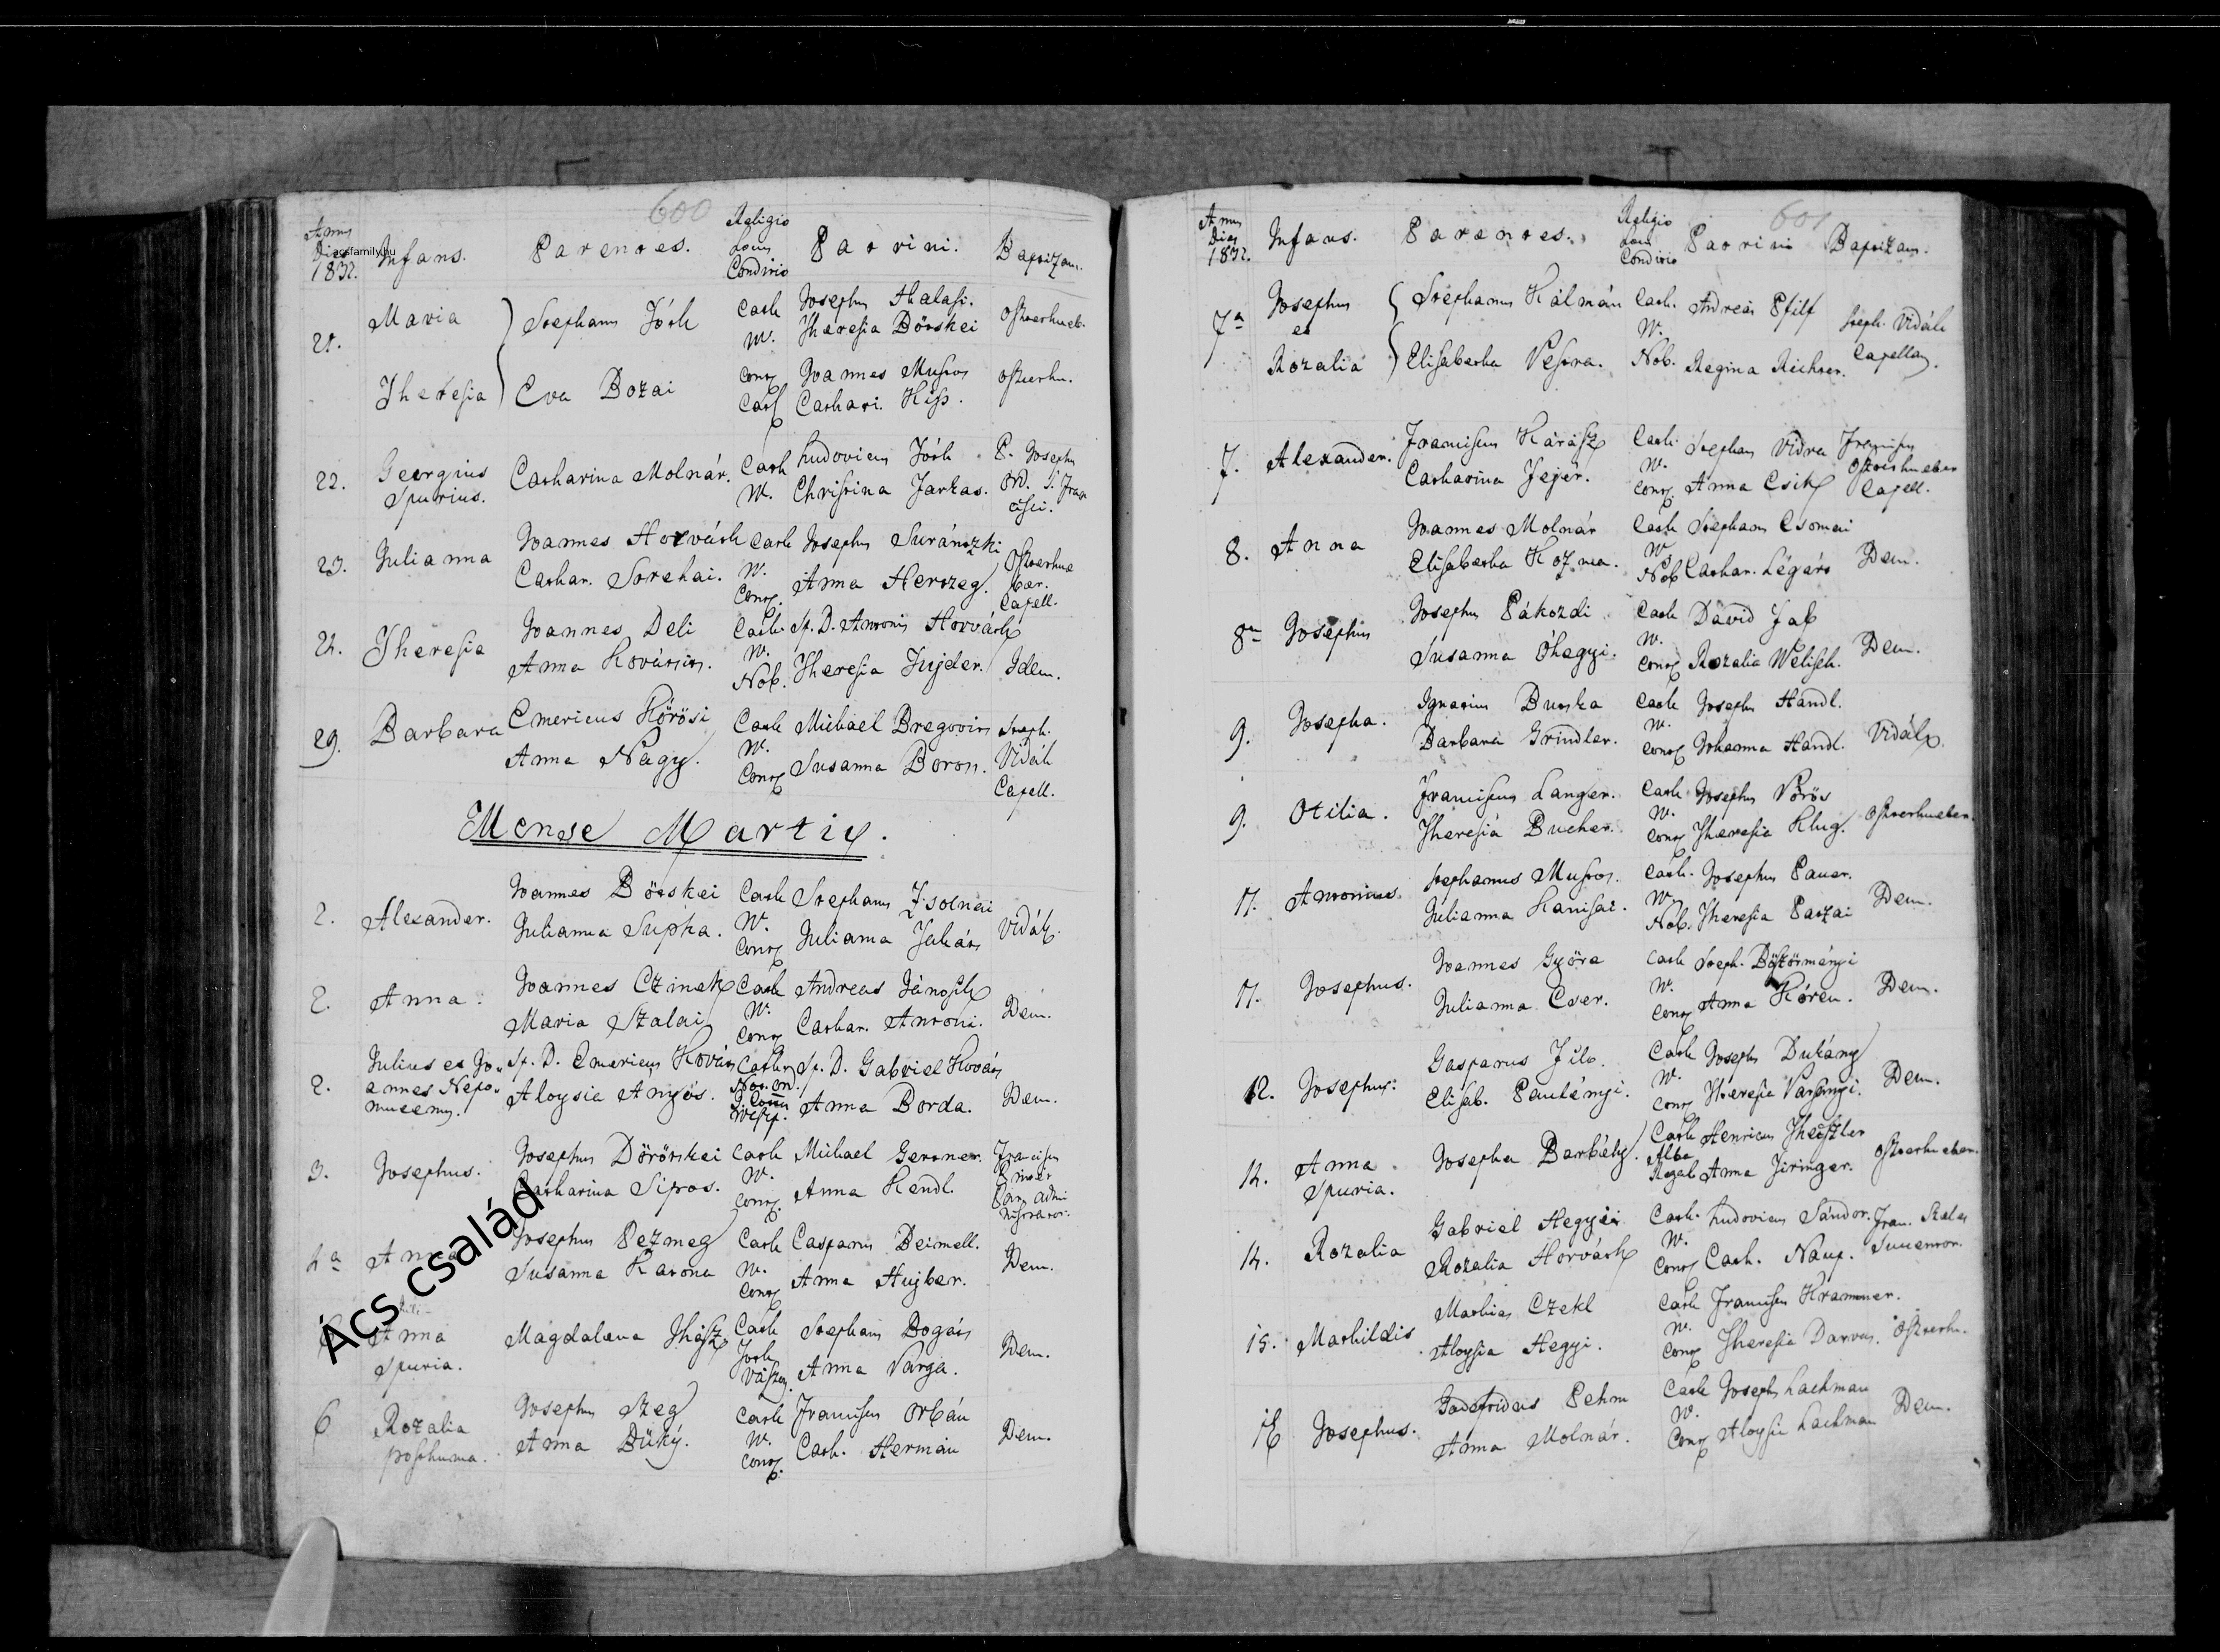 600
Annus
Dies
1832.
Infans.
Parentes.
Religio
Locus
Conditio
Patrini.
Baptizans.
acsfamily.hu
21.
Maria
Theresia
Stephanus Tóth
Eva Bozai
Cath
W.
Conv
Cath
Josephus Halasi.
Theresia Börskei
Joannes Mustos
Cathari. Kiss.
Osterhueb.
Osterhu.
22.
Georgius
Spurius.
Catharina Molnár.
Cath
W.
Ludovicus Tóth
Christina Farkas.
P. Josephus
Ord. S. Fran
cisci.
23.
Julianna
Joannes Horváth
Cathar. Sorehai.
Cath
W.
Conv.
Josephus Suránszki
Anna Herszeg.
Osterhue
ber.
Capell.
24.
Theresia
Joannes Deli
Anna Kovácsics.
Cath.
W.
Nob.
Sp. D. Antonius Horváth
Theresia Fujder.
Idem.
29.
Barbara
Emericus Körösi
Anna Nagy.
Cath
W.
Conv
Michael Bregovics
Susanna Boros.
Steph.
Vidák
Capell.
Mense Martii.
2.
Alexander.
Joannes Börskei
Julianna Supka.
Cath
W.
Conv
Stephanus Zsolnai
Julianna Juhász
Vidák.
2.
Anna.
Joannes Czinek
Maria Szalai
Cath
W.
Conv
Andreas Jánosik
Cathar. Antoni.
Idem.
2.
Julius et Jo-
annes Nepo-
mucenus.
Sp. D. Emericus Kováts
Aloysia Anyós.
Cath
Not. ord.
I. Comm
Vesp.
Sp. D. Gabriel Kováts
Anna Borda.
Idem.
3.
Josephus.
Josephus Dörörskei
Catharina Sipos.
Cath
W.
Conv.
Michael Gerstner.
Anna Kendl.
Franciscus
Pintér
Par. Admi
nistrator.
4a
Anna
Josephus Pezmeg
Susanna Katona
Cath
W.
Conv
Casparus Deimell.
Anna Hujber.
Idem.
Anna
Spuria.
Magdalena Ihász
Cath
Tóth
Vásony.
Stephanus Bogáts
Anna Varga.
Idem.
6
Rozalia
posthuma.
Josephus Szeg
Anna Düky.
Cath
W.
Conv.
Franciscus Orbán
Cath. Hermán
Idem.
Ács család
601
Annus
Dies
1832.
Infans.
Parentes.
Religio
Locus
Conditio
Patrini
Baptizans.
7a
Josephus
et
Rozalia
Stephanus Kálmán
Elisabetha Vestra.
Cath.
W.
Nob.
Andreas Pfilf
Regina Richter.
Steph. Vidák
Capellan.
7.
Alexander.
Franciscus Kárász
Catharina Fejér.
Cath.
W.
Conv.
Stephanus Vidra
Anna Csik
Franciscus
Osterhueber
Capell.
8.
Anna
Joannes Molnár
Elisabetha Kozma.
Cath
W
Nob
Stephanus Csomai
Cathar. Légárt
Idem.
8a
Josephus
Josephus Pákozdi
Susanna Óhegyi.
Cath
W.
Conv
David Jak
Rozalia Welisch.
Idem.
9.
Josepha.
Ignatius Burka
Barbara Grindler.
Cath
W.
Conv
Josephus Handl.
Johanna Handl.
Vidák.
9.
Otilia.
Franciscus Langer.
Theresia Bucher.
Cath
W.
Conv
Josephus Vörös
Theresia Klug.
Osterhueber.
11.
Antonius.
Stephanus Mustos.
Julianna Kanisai.
Cath.
W.
Nob.
Josephus Pauer.
Theresia Paszai
Idem.
11.
Josephus.
Joannes Györe
Julianna Cser.
Cath
W.
Conv
Steph. Böszörményi
Anna Kóren.
Idem.
12.
Josephus.
Gasparus Filo.
Elisab. Paulényi.
Cath
W.
Conv
Josephus Dukány
Theresia Varsányi.
Idem.
14.
Anna
Spuria.
Josepha Barbély.
Cath
Alba
Regal
Henricus Theiszler
Anna Jiringer.
Osterhueber.
14.
Rozalia
Gabriel Hegyei
Rozalia Horváth
Cath.
W.
Conv
Ludovicus Sándor.
Cath. Naup.
Fran. Szalai
Successor.
15.
Mathildis.
Mathias Czekl
Aloysia Hegyi.
Cath
W.
Conv
Franciscus Krammer.
Theresia Darvas.
Osterhu.
18
Josephus.
Godefridus Pehm
Anna Molnár.
Cath
W.
Conv
Josephus Lachman
Aloysia Lachman
Idem.